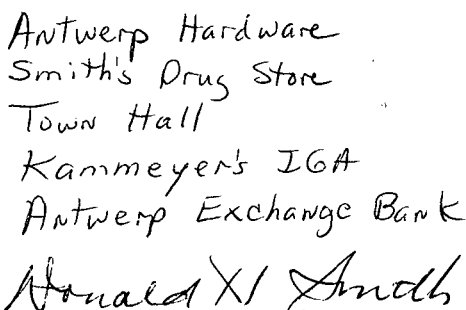 Antwerp Hardware
Smith's Drug Store
Town Hall
Kammeyer's IGA
Antwerp Exchange Bank
Donald Smith